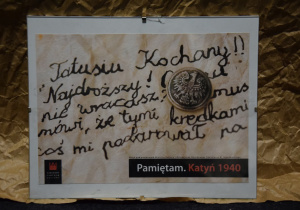 Tatusiu Kochany!!
Najdroższy!
nie wracasz?
mówi, że tymi kredkami
coś mi podarował na
Pamiętam. Katyń 1940